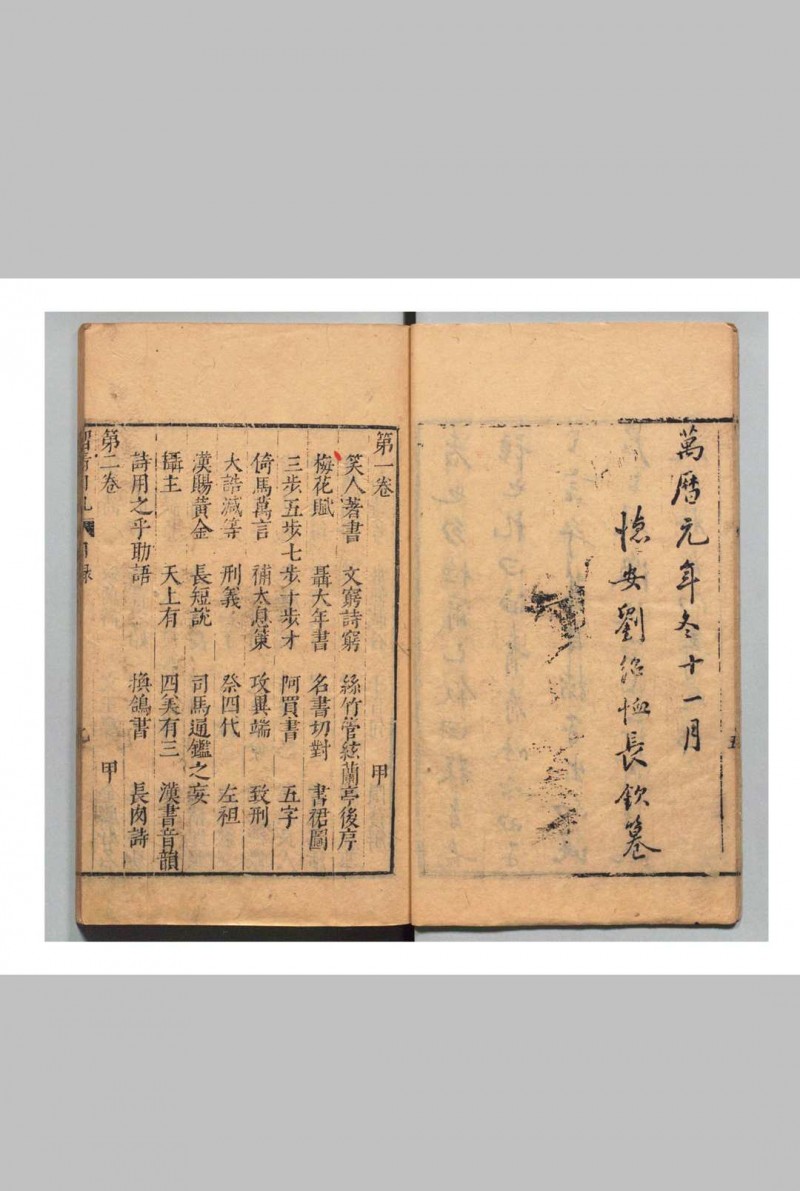 萬曆元年冬十一月
德安劉紹恤長欽纂
五
第一卷 甲
笑人著書 文窮詩窮 絲竹管絃蘭亭後序
梅花賦 聶大年書 名書切對 書裙圖
三步五步七步十步才 阿買書 五字
倚馬萬言 補太息策 攻異端 致刑
大誥減等 刑義 祭四代 左袒
漢賜黃金 長短說 司馬通鑑之妄
攝主 天上有 四美有三 漢書音韻
詩用之乎助語 換鵝書 長肉詩
第二卷 甲
目錄